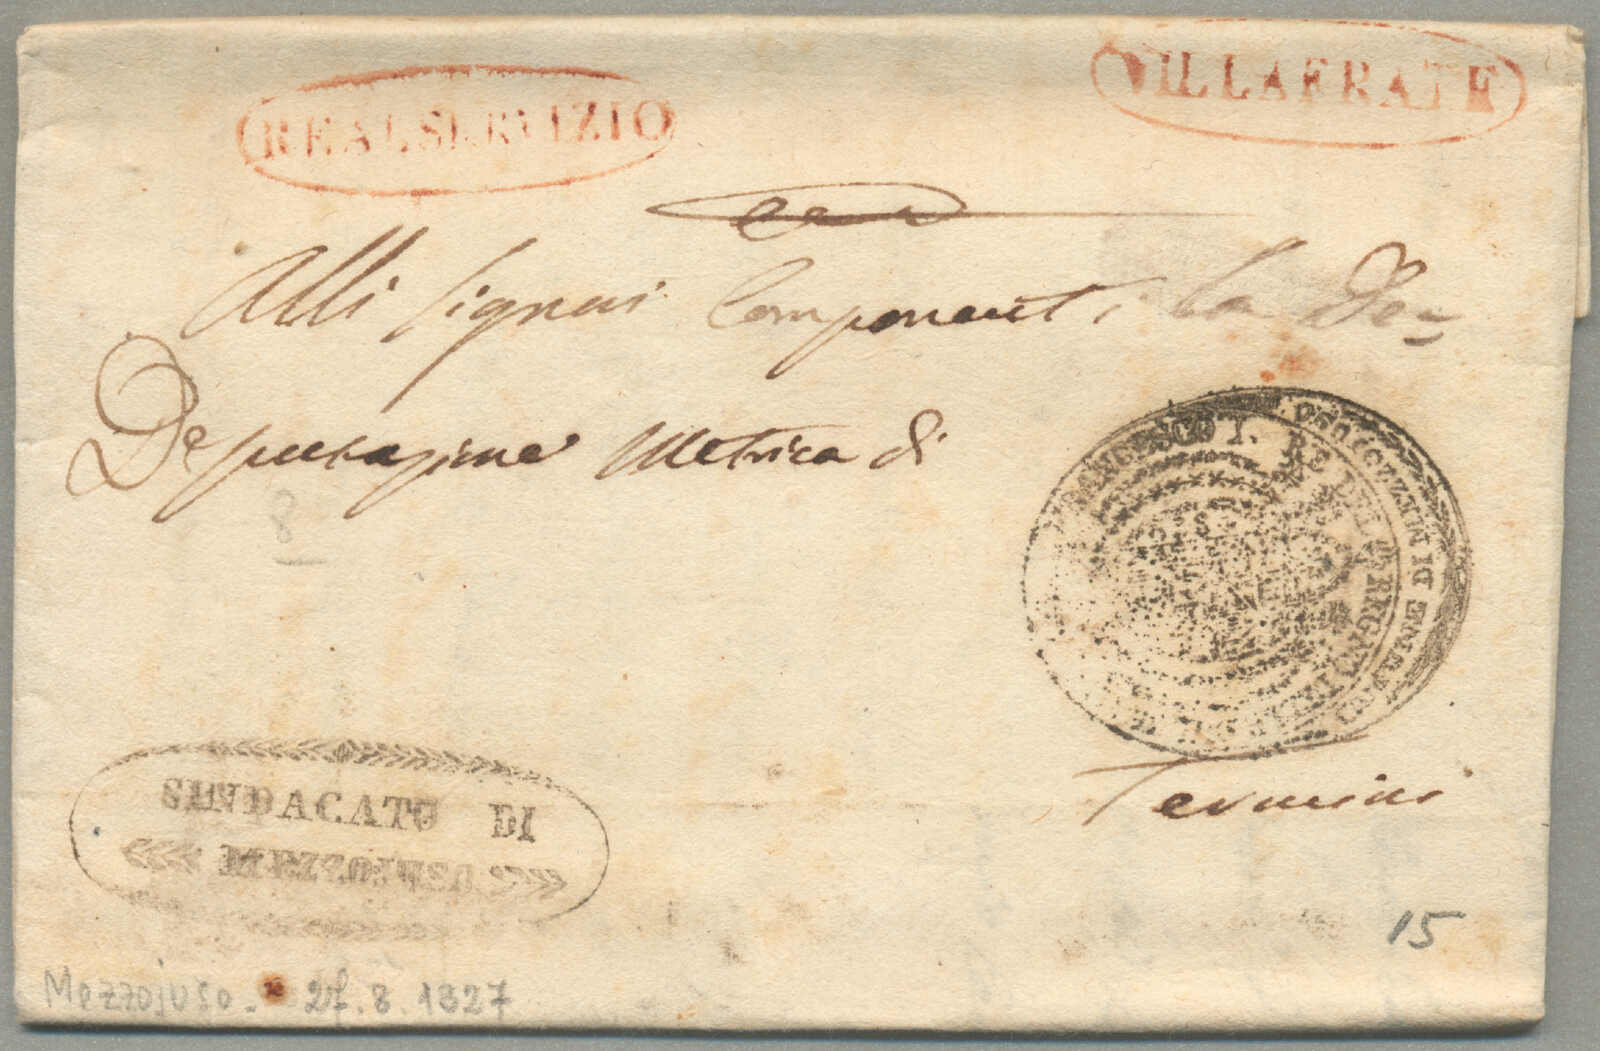 REAL SERVIZIO
VILLAFRATE
Alli Signori Componenti la De=
Deputazione Metrica di
FRANCESCO I. RE DEL REGNO
DI MEZZOJUSO
8
Termini
SINDACATO DI
MEZZOJUSO
15
Mezzojuso - 27.8.1827